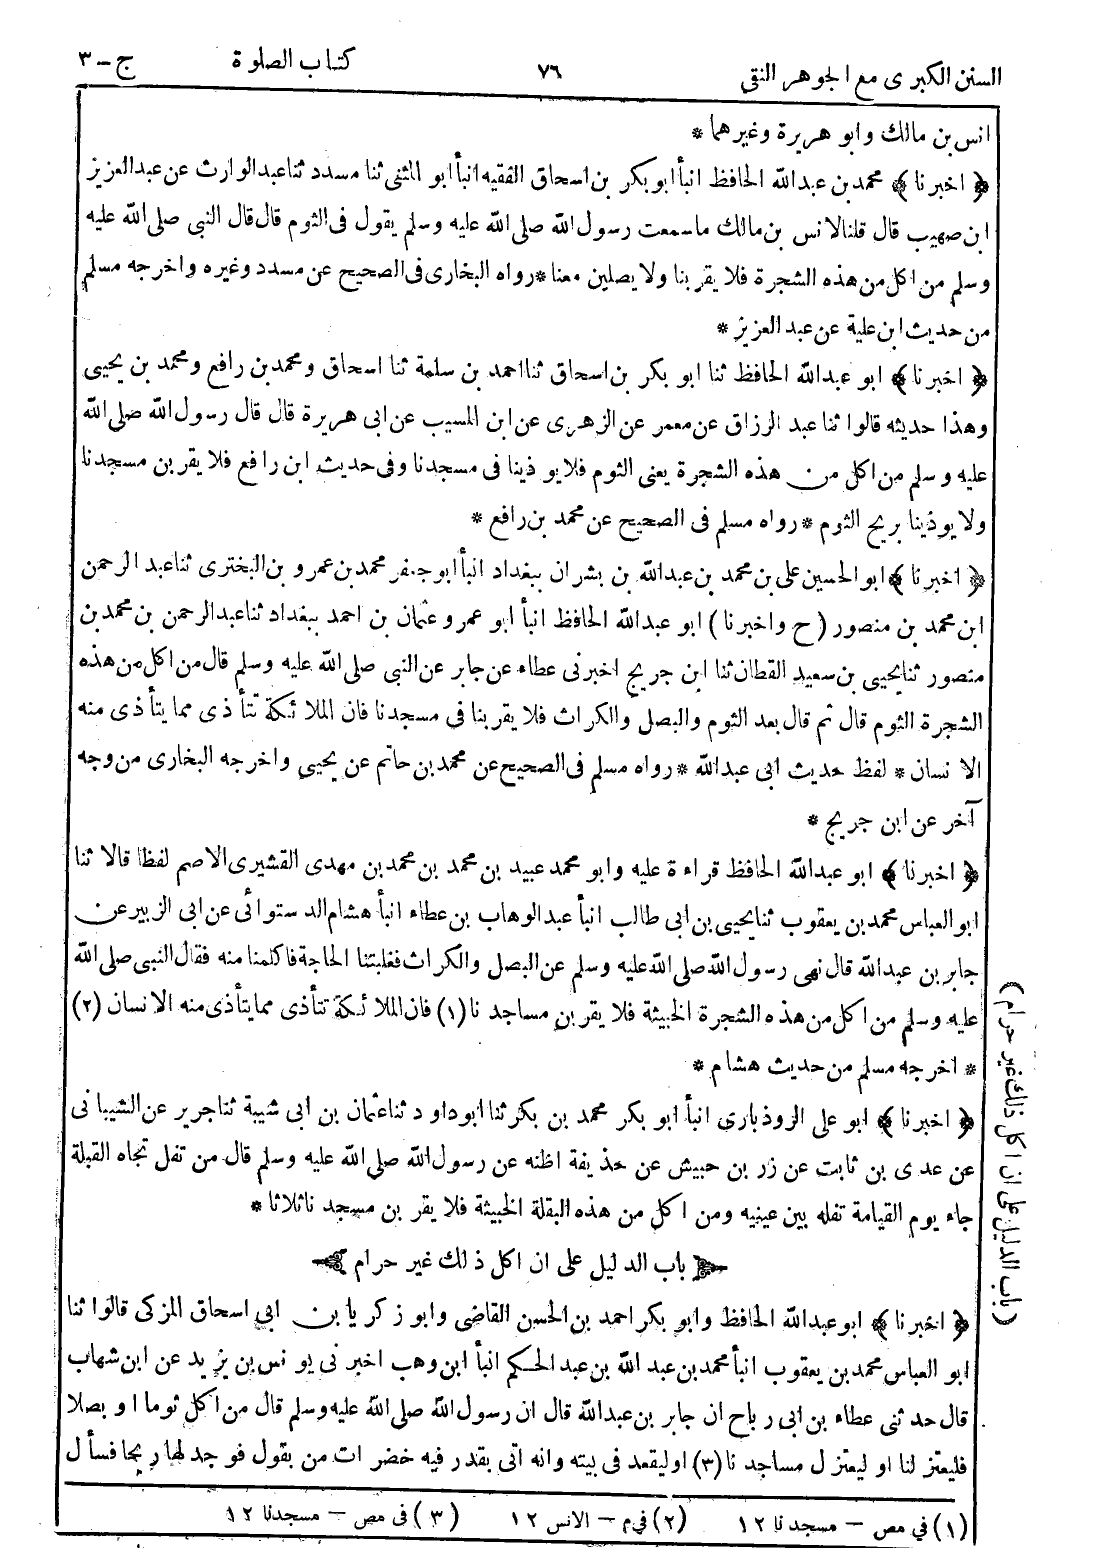 السنن الكبرى مع الجوهر النقى ٧٦ كتاب الصلوة ج-٣
انس بن مالك وابو هريرة وغيرهما *
﴿ اخبرنا ﴾ محمد بن عبدالله الحافظ انبأ ابو بكر بن اسحاق الفقيه انبأ ابو المثنى ثنا مسدد ثنا عبد الوارث عن عبدالعزيز
ابن صهيب قال قلنا لانس بن مالك ما سمعت رسول الله صلى الله عليه وسلم يقول فى الثوم قال قال النبى صلى الله عليه
وسلم من اكل من هذه الشجرة فلا يقربنا ولا يصلين معنا * رواه البخارى فى الصحيح عن مسدد وغيره واخرجه مسلم
من حديث ابن علية عن عبد العزيز *
﴿ اخبرنا ﴾ ابو عبدالله الحافظ ثنا ابو بكر بن اسحاق ثنا احمد بن سلمة ثنا اسحاق ومحمد بن رافع ومحمد بن يحيى
وهذا حديثه قالوا ثنا عبد الرزاق عن معمر عن الزهرى عن ابن المسيب عن ابى هريرة قال قال رسول الله صلى الله
عليه وسلم من اكل من هذه الشجرة يعنى الثوم فلا يوذينا فى مسجدنا وفى حديث ابن رافع فلا يقربن مسجدنا
ولا يوذينا بريح الثوم * رواه مسلم فى الصحيح عن محمد بن رافع *
﴿ اخبرنا ﴾ ابو الحسين على بن محمد بن عبدالله بن بشران ببغداد انبأ ابو جعفر محمد بن عمرو بن البخترى ثنا عبد الرحمن
ابن محمد بن منصور ( ح واخبرنا ) ابو عبدالله الحافظ انبأ ابو عمرو عثمان بن احمد ببغداد ثنا عبد الرحمن بن محمد بن
منصور ثنا يحيى بن سعيد القطان ثنا ابن جريج اخبرنى عطاء عن جابر عن النبى صلى الله عليه وسلم قال من اكل من هذه
الشجرة الثوم قال ثم قال بعد الثوم والبصل والكراث فلا يقربنا فى مسجدنا فان الملائكة تتأذى مما يتأذى منه
الانسان * لفظ حديث ابى عبدالله * رواه مسلم فى الصحيح عن محمد بن حاتم عن يحيى واخرجه البخارى من وجه
آخر عن ابن جريج *
﴿ اخبرنا ﴾ ابو عبدالله الحافظ قراءة عليه وابو محمد عبيد بن محمد بن محمد بن مهدى القشيرى الاصم لفظا قالا ثنا
ابو العباس محمد بن يعقوب ثنا يحيى بن ابى طالب انبأ عبد الوهاب بن عطاء انبأ هشام الدستوائى عن ابى الزبير عن
جابر بن عبدالله قال نهى رسول الله صلى الله عليه وسلم عن البصل والكراث فغلبتنا الحاجة فاكلمنا منه فقال النبى صلى الله
عليه وسلم من اكل من هذه الشجرة الخبيثة فلا يقربن مساجدنا (١) فان الملائكة تتأذى مما يتأذى منه الانسان (٢)
* اخرجه مسلم من حديث هشام *
﴿ اخبرنا ﴾ ابو على الروذبارى انبأ ابو بكر محمد بن بكر ثنا ابوداود ثنا عثمان بن ابى شيبة ثنا جرير عن الشيبانى
عن عدى بن ثابت عن زر بن حبيش عن حذيفة اظنه عن رسول الله صلى الله عليه وسلم قال من تفل تجاه القبلة
جاء يوم القيامة تفله بين عينيه ومن اكل من هذه البقلة الخبيثة فلا يقربن مسجدنا ثلاثا *
باب الدليل على ان اكل ذلك غير حرام
( باب الدليل على ان اكل ذلك غير حرام )
﴿ اخبرنا ﴾ ابو عبدالله الحافظ وابو بكر احمد بن الحسن القاضى وابو زكريا بن ابى اسحاق المزكى قالوا ثنا
ابو العباس محمد بن يعقوب انبأ محمد بن عبد الله بن عبد الحكم انبأ ابن وهب اخبرنى يونس بن يزيد عن ابن شهاب
قال حدثنى عطاء بن ابى رباح ان جابر بن عبدالله قال ان رسول الله صلى الله عليه وسلم قال من اكل ثوما او بصلا
فليعتزلنا او ليعتزل مساجدنا (٣) او ليقعد فى بيته وانه اتى بقدر فيه خضرات من بقول فوجد لها ريحا فسأل
(١) في مص - مسجدنا ١٢ (٢) في م - الانس ١٢ (٣) فى مص - مسجدنا ١٢